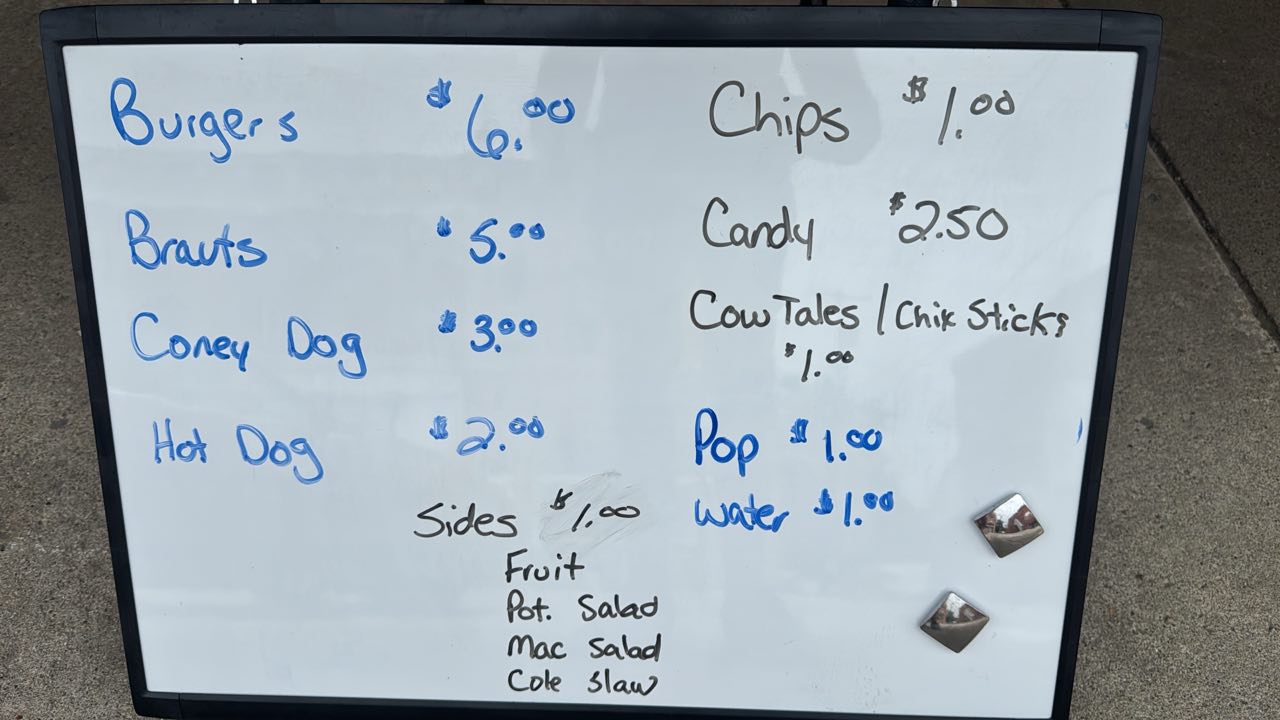 Burgers $6.00
Brauts $5.00
Coney Dog $3.00
Hot Dog $2.00
Sides $1.00
Fruit
Pot. Salad
Mac Salad
Cole Slaw
Chips $1.00
Candy $2.50
Cow Tales / Chik Sticks
$1.00
Pop $1.00
water $1.00